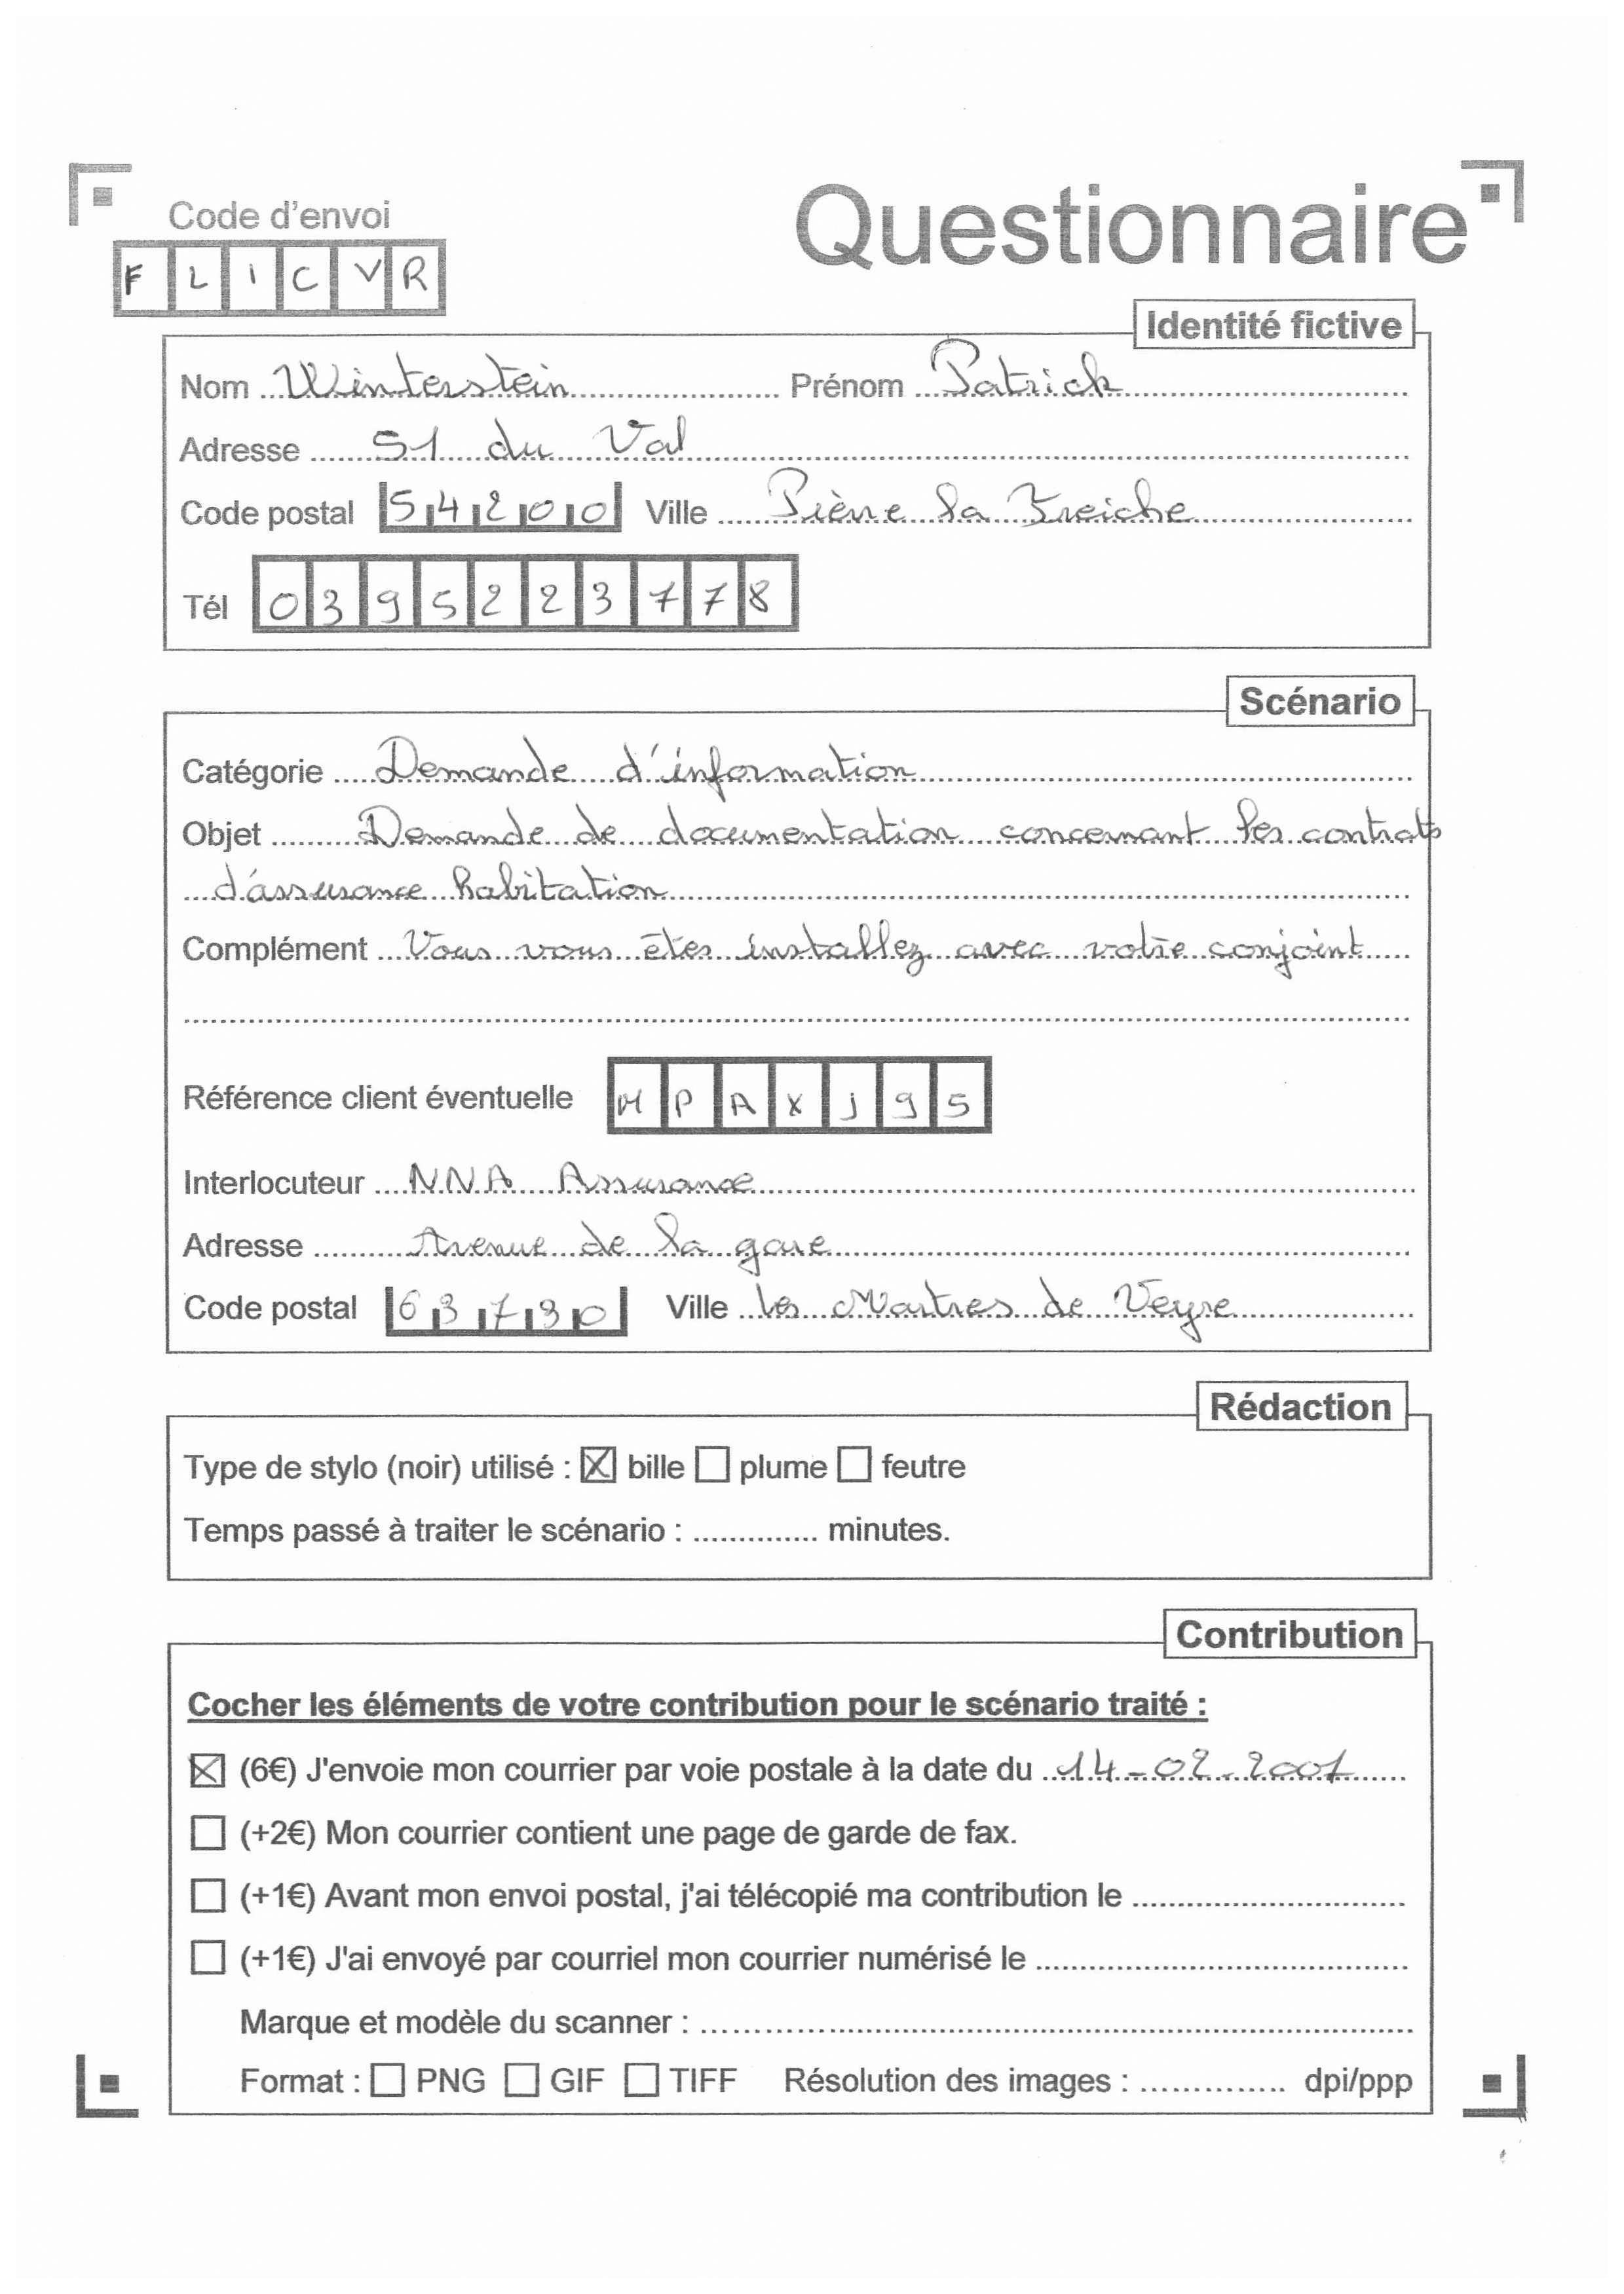 Code d'envoi
Questionnaire
F L I C V R
Identité fictive
Nom Winterstein Prénom Patrick
Adresse 51 du Val
Code postal 54200 Ville Pière la Treiche
Tél 0395223778
Scénario
Catégorie Demande d'information
Objet Demande de documentation concernant les contrats
d'assurance habitation
Complément Vous vous êtes installez avec votre conjoint
Référence client éventuelle MPAXJ95
Interlocuteur NNA Assurance
Adresse Avenue de la gare
Code postal 63730 Ville les Martres de Veyre
Rédaction
Type de stylo (noir) utilisé : ☒ bille ☐ plume ☐ feutre
Temps passé à traiter le scénario : .............. minutes.
Contribution
Cocher les éléments de votre contribution pour le scénario traité :
☒ (6€) J'envoie mon courrier par voie postale à la date du 14-02-2007
☐ (+2€) Mon courrier contient une page de garde de fax.
☐ (+1€) Avant mon envoi postal, j'ai télécopié ma contribution le ..............
☐ (+1€) J'ai envoyé par courriel mon courrier numérisé le ..............
Marque et modèle du scanner : ..............
Format : ☐ PNG ☐ GIF ☐ TIFF Résolution des images : .............. dpi/ppp